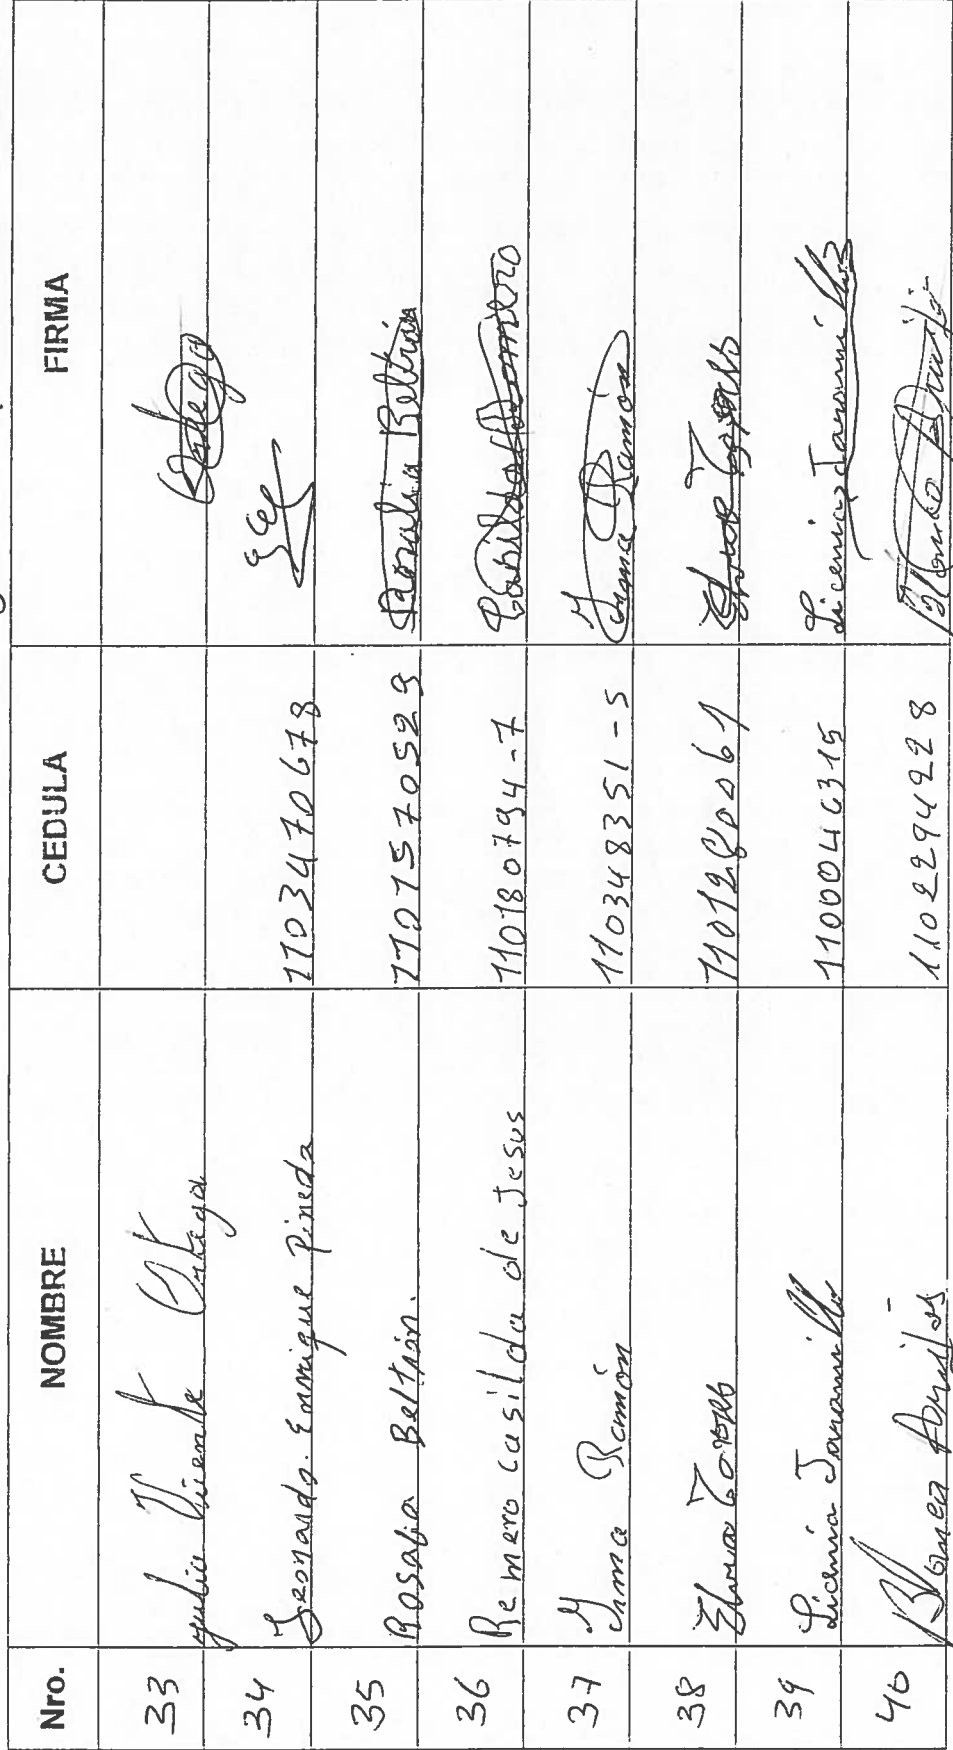 Nro. NOMBRE CEDULA FIRMA
33 Julio Vicente Ortega Ortega
34 Leonardo. Enrrique Pineda 1103470678
35 Rosalia Beltrán. 1101570529 Rosalia Beltrán
36 Romero Casilda de Jesus 110180794-7 Casilda Romero
37 Irma Ramón 110348351-5 Irma Ramón
38 Elvia Torres 1101280061 Torres
39 Licenia Jaramillo 1100046315 Licenia Jaramillo
40 Blanca 1102294228 Blanca